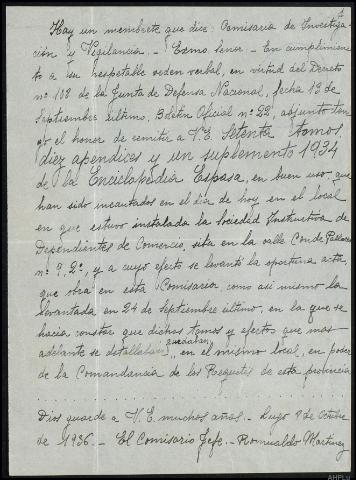 Hay un membrete que dice: Comisaria de Investiga
ción y Vigilancia. - Exmo Señor. - En cumplimien
to a su respetable orden verbal, en virtud del Decreto
nº 108 de la Junta de Defensa Nacional, fecha 13 de
Septiembre último, Boletin Oficial nº 22, adjunto ten
go el honor de remitir a V.E. Setenta tomos,
diez apendices y un suplemento 1934
de la Enciclopedia Espasa, en buen uso, que
han sido incautados en el día de hoy, en el local
en que estuvo instalada la Sociedad Instructiva de
Dependientes de Comercio, sita en la calle Conde Pallares
nº 2º, y a cuyo efecto se levantó la oportuna acta
que obra en esta Comisaria como asi mismo la
levantada en 24 de Septiembre último, en la que se
hacia constar que dichos tomos y efectos que mas
adelante se detallaban, quedaban, en el mismo local, en poder
de la Comandancia de los Requetés de esta provincia
Dios guarde a V.E. muchos años. - Lugo 9 de Octubre
de 1936. - El Comisario Jefe. - Romualdo Martinez
AHPLu